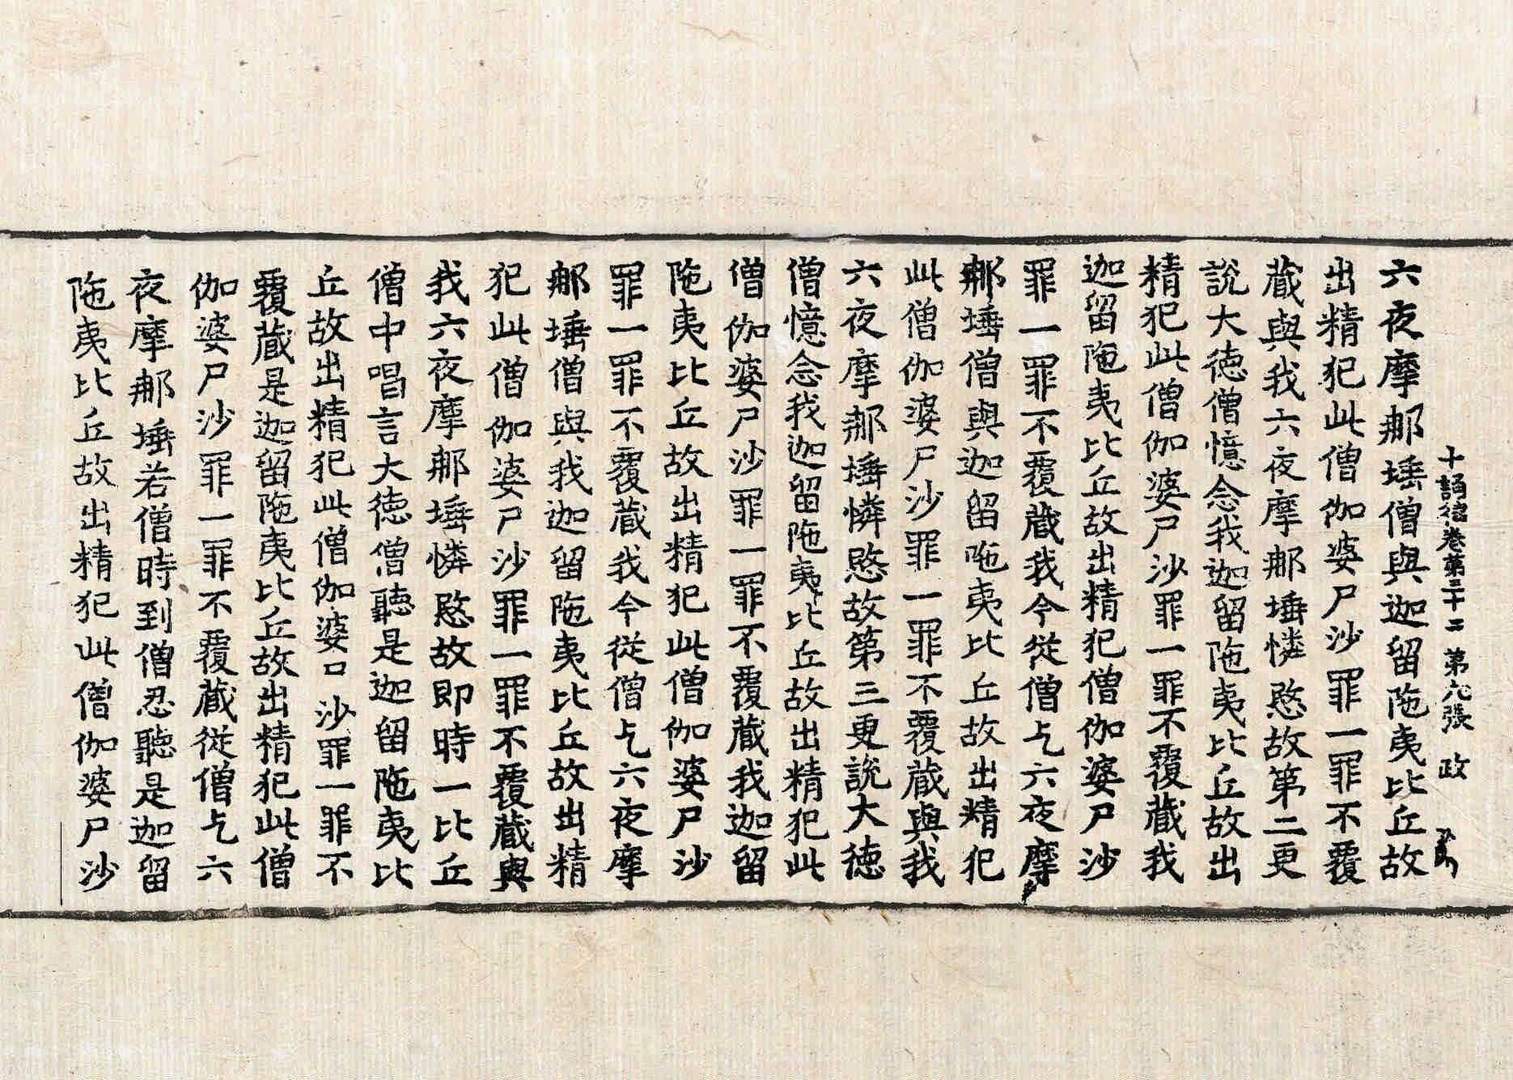 十誦律卷第三十二 第六張 政
六夜摩那埵僧與迦留陁夷比丘故
出精犯此僧伽婆尸沙罪一罪不覆
蔵與我六夜摩那埵憐愍故第二更
說大徳僧憶念我迦留陁夷比丘故出
精犯此僧伽婆尸沙罪一罪不覆蔵我
迦留陁夷比丘故出精犯僧伽婆尸沙
罪一罪不覆蔵我今從僧乞六夜摩
那埵僧與迦留陁夷比丘故出精犯
此僧伽婆尸沙罪一罪不覆蔵與我
六夜摩那埵憐愍故第三更說大徳
僧憶念我迦留陁夷比丘故出精犯此
僧伽婆尸沙罪一罪不覆蔵我迦留
陁夷比丘故出精犯此僧伽婆尸沙
罪一罪不覆蔵我今從僧乞六夜摩
那埵僧與我迦留陁夷比丘故出精
犯此僧伽婆尸沙罪一罪不覆蔵與
我六夜摩那埵憐愍故即時一比丘
僧中唱言大徳僧聽是迦留陁夷比
丘故出精犯此僧伽婆口沙罪一罪不
覆蔵是迦留陁夷比丘故出精犯此僧
伽婆尸沙罪一罪不覆蔵從僧乞六
夜摩那埵若僧時到僧忍聽是迦留
陁夷比丘故出精犯此僧伽婆尸沙